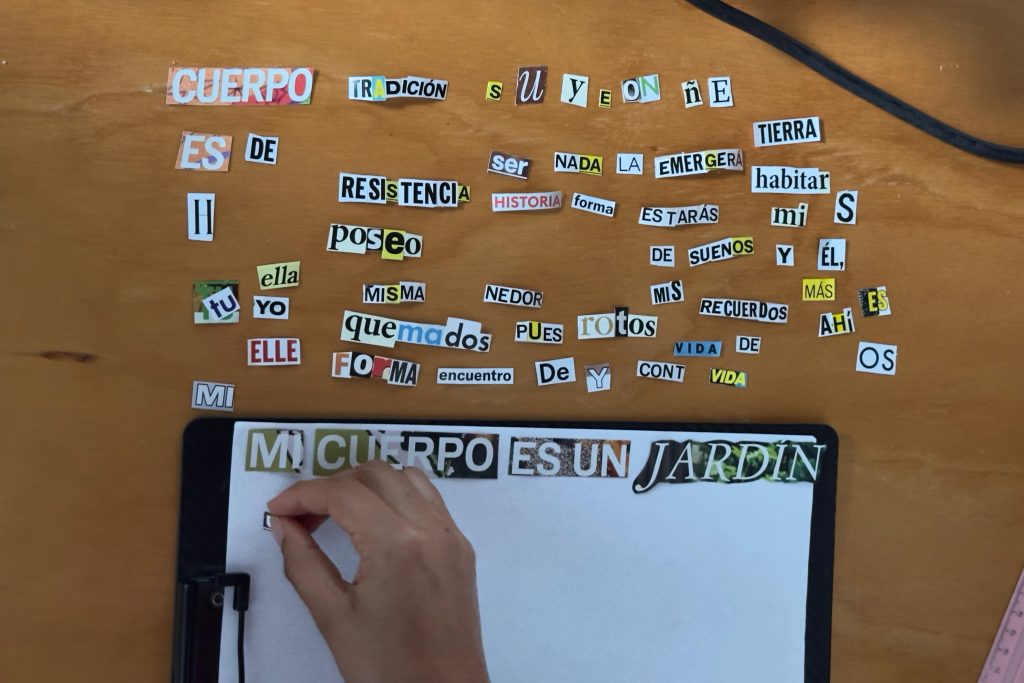 CUERPO TRADICIÓN s U y E ON ñE
TIERRA
ES DE ser NADA LA EMERGERÁ
habitar
RESISTENCIA HISTORIA forma ESTARÁS mi S
H poseo DE SUENOS Y ÉL,
ella
tu YO MISMA NEDOR MIS RECUERDOS MÁS ES
quemados PUES rotos VIDA DE AHÍ
ELLE FORMA encuentro De Y CONT VIDA OS
MI
MI CUERPO ES UN JARDÍN